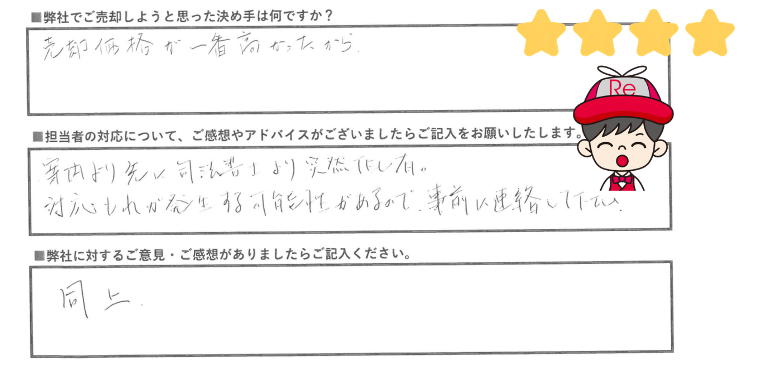 ■弊社でご売却しようと思った決め手は何ですか？
売却価格が一番高かったから.
Re
■担当者の対応について、ご感想やアドバイスがございましたらご記入をお願いしたします。
より先に司法書士より突然TEL有。
対応もれが発生する可能性があるので、事前に連絡して下さい.
■弊社に対するご意見・ご感想がありましたらご記入ください。
同上.